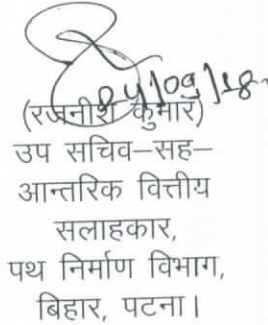 04/09/18
(रजनीश कुमार)
उप सचिव–सह–
आन्तरिक वित्तीय
सलाहकार,
पथ निर्माण विभाग,
बिहार, पटना।